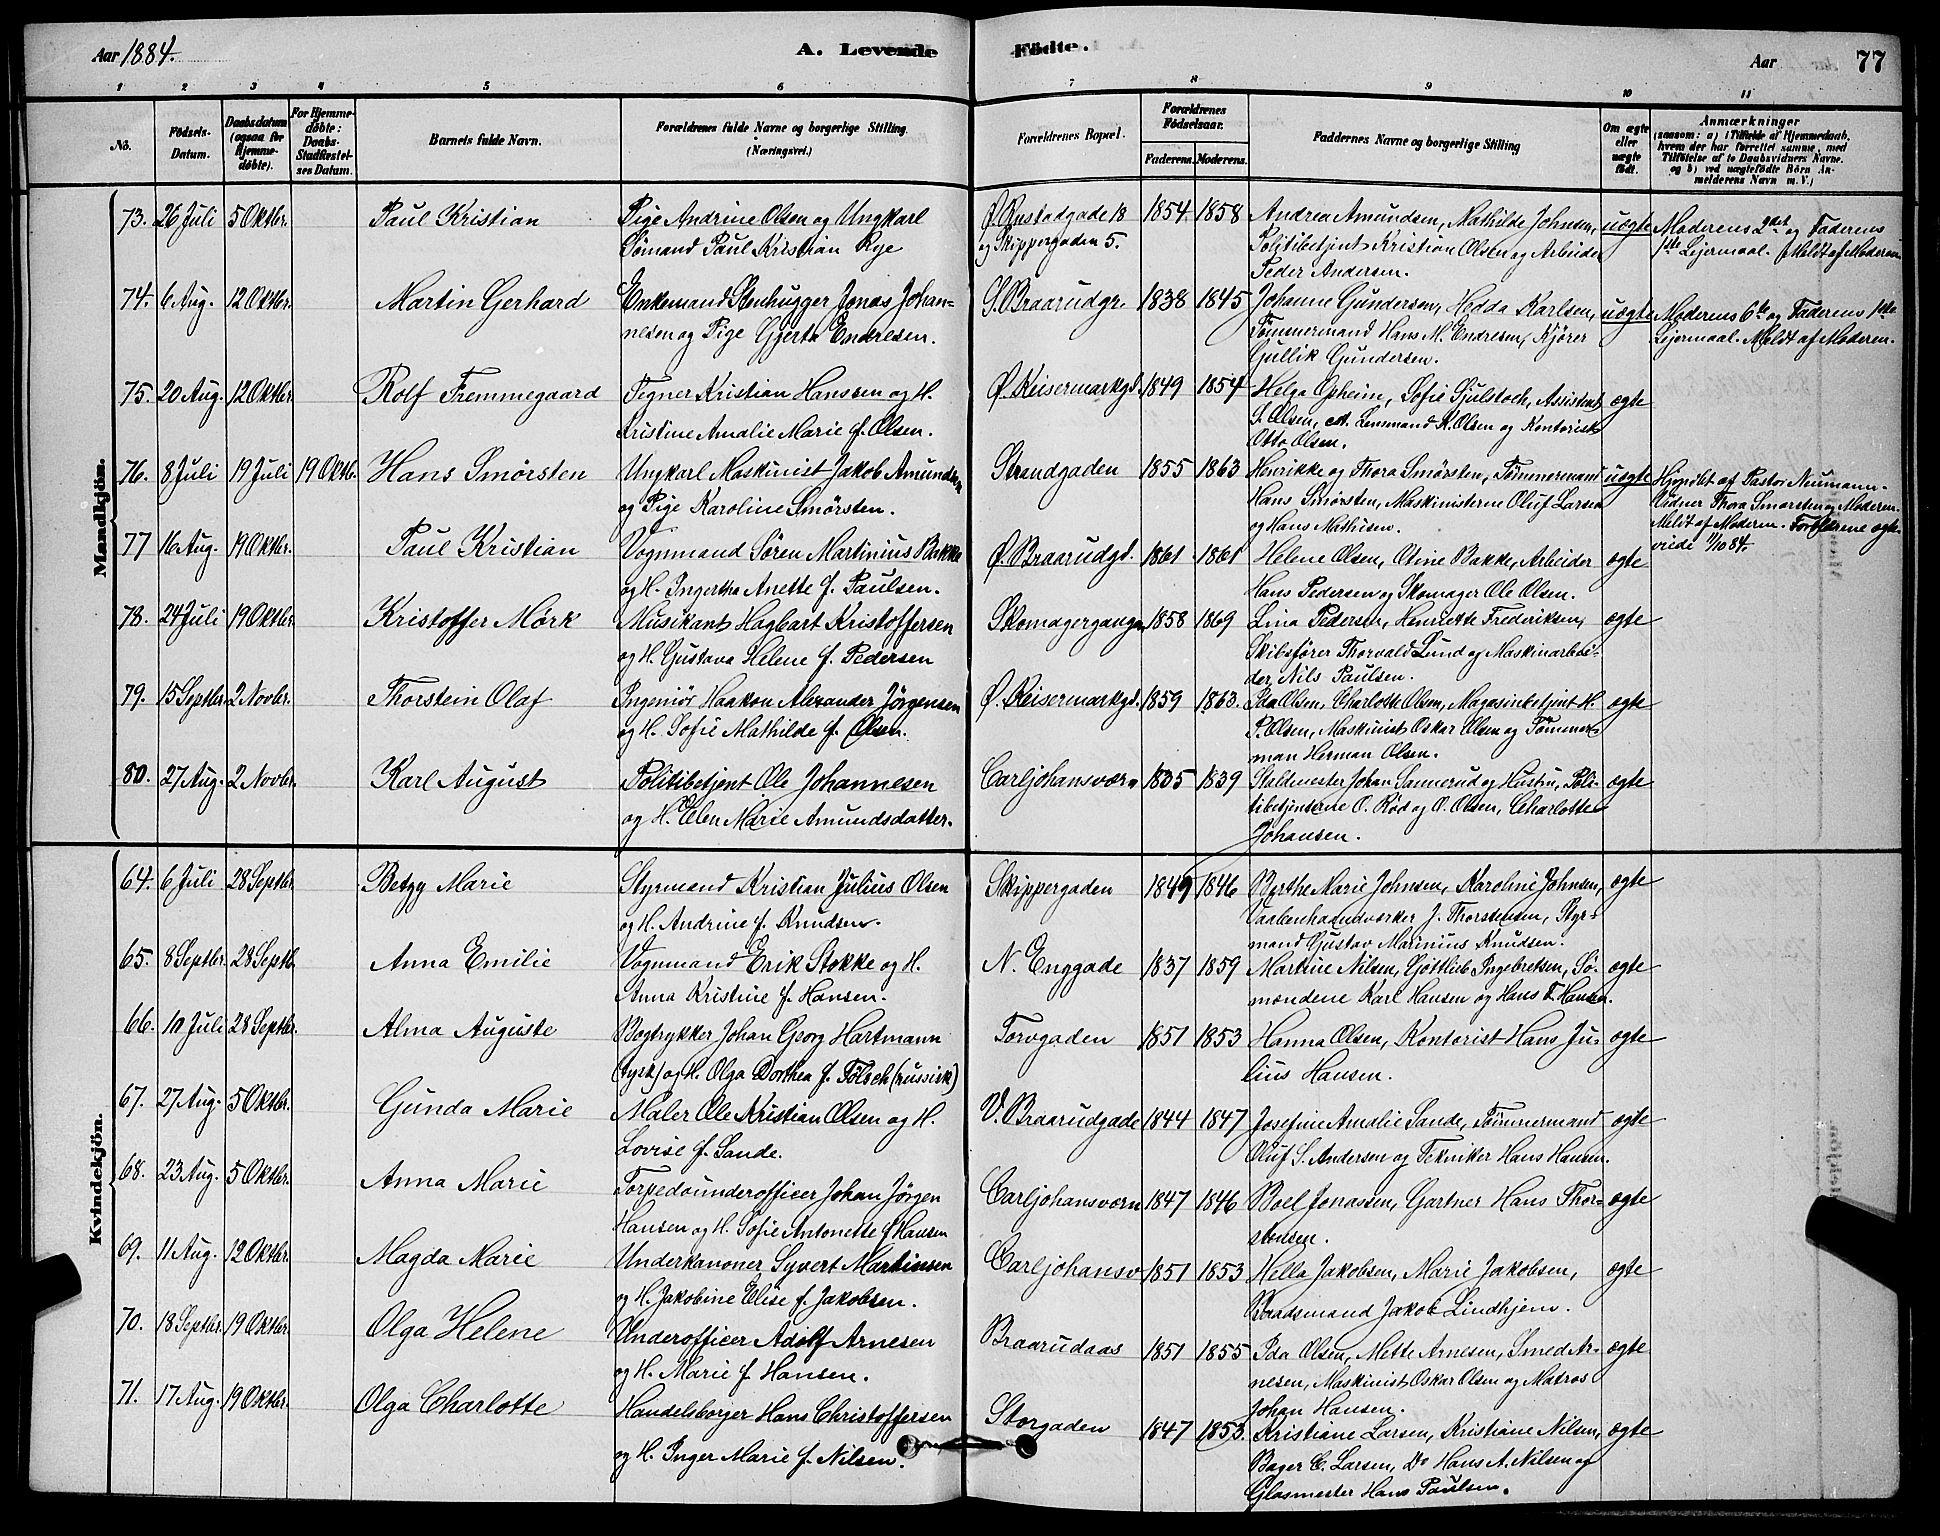 Aar 1884.
A. Levende Födte.
Aar 77
1 2 3 4 5 6 7 8 9 10 11
No.
Födsels-Datum.
Daabsdatum (ogsaa for Hjemme-döbte).
For Hjemme-döbte: Daabs-Stadfæstel-ses Datum.
Barnets fulde Navn.
Forældrenes fulde Navne og borgerlige Stilling (Næringsvei.)
Forældrenes Bopæl.
Forældrenes Födselsaar.
Faderens. Moderens.
Faddernes Navne og borgerlige Stilling
Om ægte eller uægte födt.
Anmærkninger
(saasom: a) i Tilfælde af Hjemmedaab,
hvem der har forrettet samme, med
Tilföielse af to Daabsvidners Navne.
og b) ved uægtefödte Börn An-
melderens Navn m. V.)
Mandkjön.
73. 26 Juli 5 Oktbr. Paul Kristian Pige Andrine Olsen og Ungkarl Ø. Rustadgade 18 1854. 1858 Andrea Amundsen, Mathilde Johnsen, uægte Moderens 2det og Faderens
Sömand Paul Kristian Rye og Skippergaden 5. Politibetjent Kristian Olsen og Arbeider 1ste Lejermaal. Meldt af Moderen
Peder Andersen.
74. 6 Aug. 12 Oktbr. Martin Gerhard Enkemand Stenhugger Jonas Johan= S. Braarudgr. 1838 1845 Johanne Gundersen, Hedda Karlsen, uægte Moderens 6te og Faderens 1ste
nesen og Pige Gjerta Endresen. Tömmermand Hans M. Endresen, Kjörer Lejermaal. Meldt af Moderen.
Gullik Gundersen.
75. 20 Aug. 12 Oktbr. Rolf Fremmegaard Tegner Kristian Hanssen og H. Ø. Keisermarkgd. 1849 1854 Helga Opheim, Sofie Gjulstoch, Assistent ægte
Kristine Amalie Marie f. Olsen. S. Olsen, Lensmand K. Olsen og Kontorist
Otto Olsen.
76. 8 Juli 19 Juli 19 Oktb. Hans Smörsten Ungkarl Maskinist Jakob Amundsen Strandgaden 1855 1863 Henrikke og Thora Smörsten, Tömmermand uægte Hjmdbt af Pastor Neumann.
og Pige Karoline Smörsten. Hans Smörsten, Maskinisterne Oluf Larsen Vidner Thora Smörsten og Moderen.
og Hans Mathisen. Meldt af Moderen. Forældrene ægte-
viede 11/10 84.
77 16 Aug. 19 Oktbr. Paul Kristian Vognmand Sören Martinius Bakke Ø. Braarudgd. 1861 1861 Helene Olsen, Otine Bakke, Arbeider ægte
og H. Ingertha Anette f. Paulsen. Hans Pedersen og Skomager Ole Olsen.
78. 24 Juli 19 Oktbr. Kristoffer Mörk Musikant Hagbart Kristoffersen Skomagergangen 1858 1869 Lina Pedersen, Henriette Frederiksen, ægte
og H. Gustava Helene f. Pedersen Skibsförer Thorvald Lund og Maskinarbei-
der, Nils Paulsen.
79. 15 Septbr. 2 Novbr. Thorstein Olaf Ingeniör Haakon Alexander Jörgensen Ø. Keisermarkgd. 1859 1863. Ida Olsen, Charlotte Olsen, Magasinbetjent H. ægte
og H. Sofie Mathilde f. Olsen. P. Olsen, Maskinist Oskar Olsen og Tömmer=
man Herman Olsen.
80. 27 Aug. 2 Novbr. Karl August Politibetjent Ole Johannesen Carljohansværn 1835 1839 Staldmester Johan Sannerud og Hustru, Poli= ægte
og H. Elen Marie Amundsdatter. tibetjenterne O. Röd og O. Olsen, Charlotte
Johansen.
Kvindekjön.
64. 6 Juli 28 Septbr. Betzy Marie Styrmand Kristian Julius Olsen Skippergaden 1849 1846 Berthe Marie Johnsen, Karoline Johnsen, ægte
og H. Andrine f. Knudsen. Vaabenhaandværker J. Thorstensen, Styr=
mand Gustav Marinius Knudsen.
65. 8 Septbr. 28 Septb. Anna Emilie Vognmand Erik Stokke og H. N. Enggade 1837 1859 Martine Nilsen, Gottlieb Ingebretsen, Sö- ægte
Anna Kristine f. Hansen. mændene Karl Hansen og Hans T. Hansen.
66. 10 Juli 28 Septbr. Alma Auguste Bogtrykker Johan Georg Hartmann Torvgaden 1851 1853 Hanna Olsen, Kontorist Hans Ju- ægte
(tysk) og H. Olga Dorthea f. Tölsch (russisk) lius Hansen.
67. 27 Aug. 5 Oktbr. Gunda Marie Maler Ole Kristian Olsen og H. V. Braarudgade 1844 1847 Josefine Amalie Sande, Tömmermand ægte
Lovise f. Sande. Oluf S. Andersen og Tekniker Hans Hansen.
68. 23 Aug. 5 Oktbr. Anna Marie Torpedounderofficer Johan Jörgen Carljohansværn 1847 1846 Boel Jonassen, Gartner Hans Thor= ægte
Hansen og H. Sofie Antonette f. Hansen stensen.
69. 11 Aug. 12 Oktbr. Magda Marie Underkanoner Syvert Martinsen Carljohansv 1851 1853 Hella Jakobsen, Marie Jakobsen, ægte
og H. Jakobine Elise f. Jakobsen. Baadsmand Jakob Lindhjem.
70. 18 Septbr. 19 Oktbr. Olga Helene Underofficer Adolf Arnesen Braarudaas 1851 1855 Ida Olsen, Mette Arnesen, Smed Ar- ægte
og H. Marie f. Hansen. nesen, Maskinist Oskar Olsen og Matros
Johan Hansen.
71. 17 Aug. 19 Oktbr. Olga Charlotte Handelsborger Hans Christoffersen Storgaden 1847 1853. Kristiane Larsen, Kristiane Nilsen, ægte
og H. Inger Marie f. Nilsen. Bager C. Larsen, Do Hans A. Nilsen og
Glasmester Hans Paulsen.